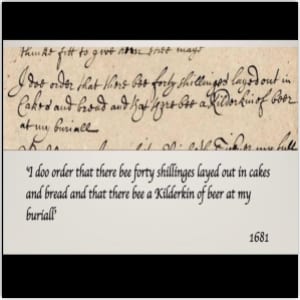 thinke fitt to give
I doe order that there bee forty shillinges layed out in
Cakes and bread and that there bee a Kilderkin of beer
at my buriall
'I doo order that there bee forty shillinges layed out in cakes
and bread and that there bee a Kilderkin of beer at my
buriall'
1681